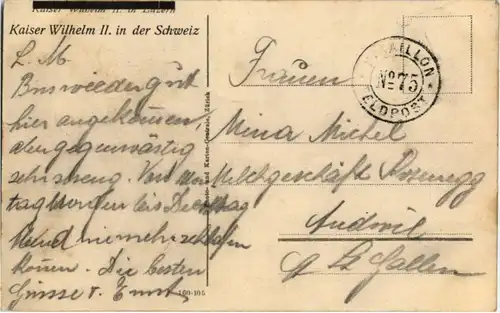 Kaiser Wilhelm II. in Luzern
Kaiser Wilhelm II. in der Schweiz
L. M.
Bin wieder gut
hier angekommen,
aber gegenwärtig
sehr streng. Von Mon
tag Morgen bis Dienstag
Abend nicht mehr schlafen
können. Die besten
Grüsse v. Ernst
160-105
und Karten-Centrale, Zürich
BATAILLON
No 75
FELDPOST
Frauen
Mina Michel
Milchgeschäft Rosenegg
Andwil
Kt. St. Gallen